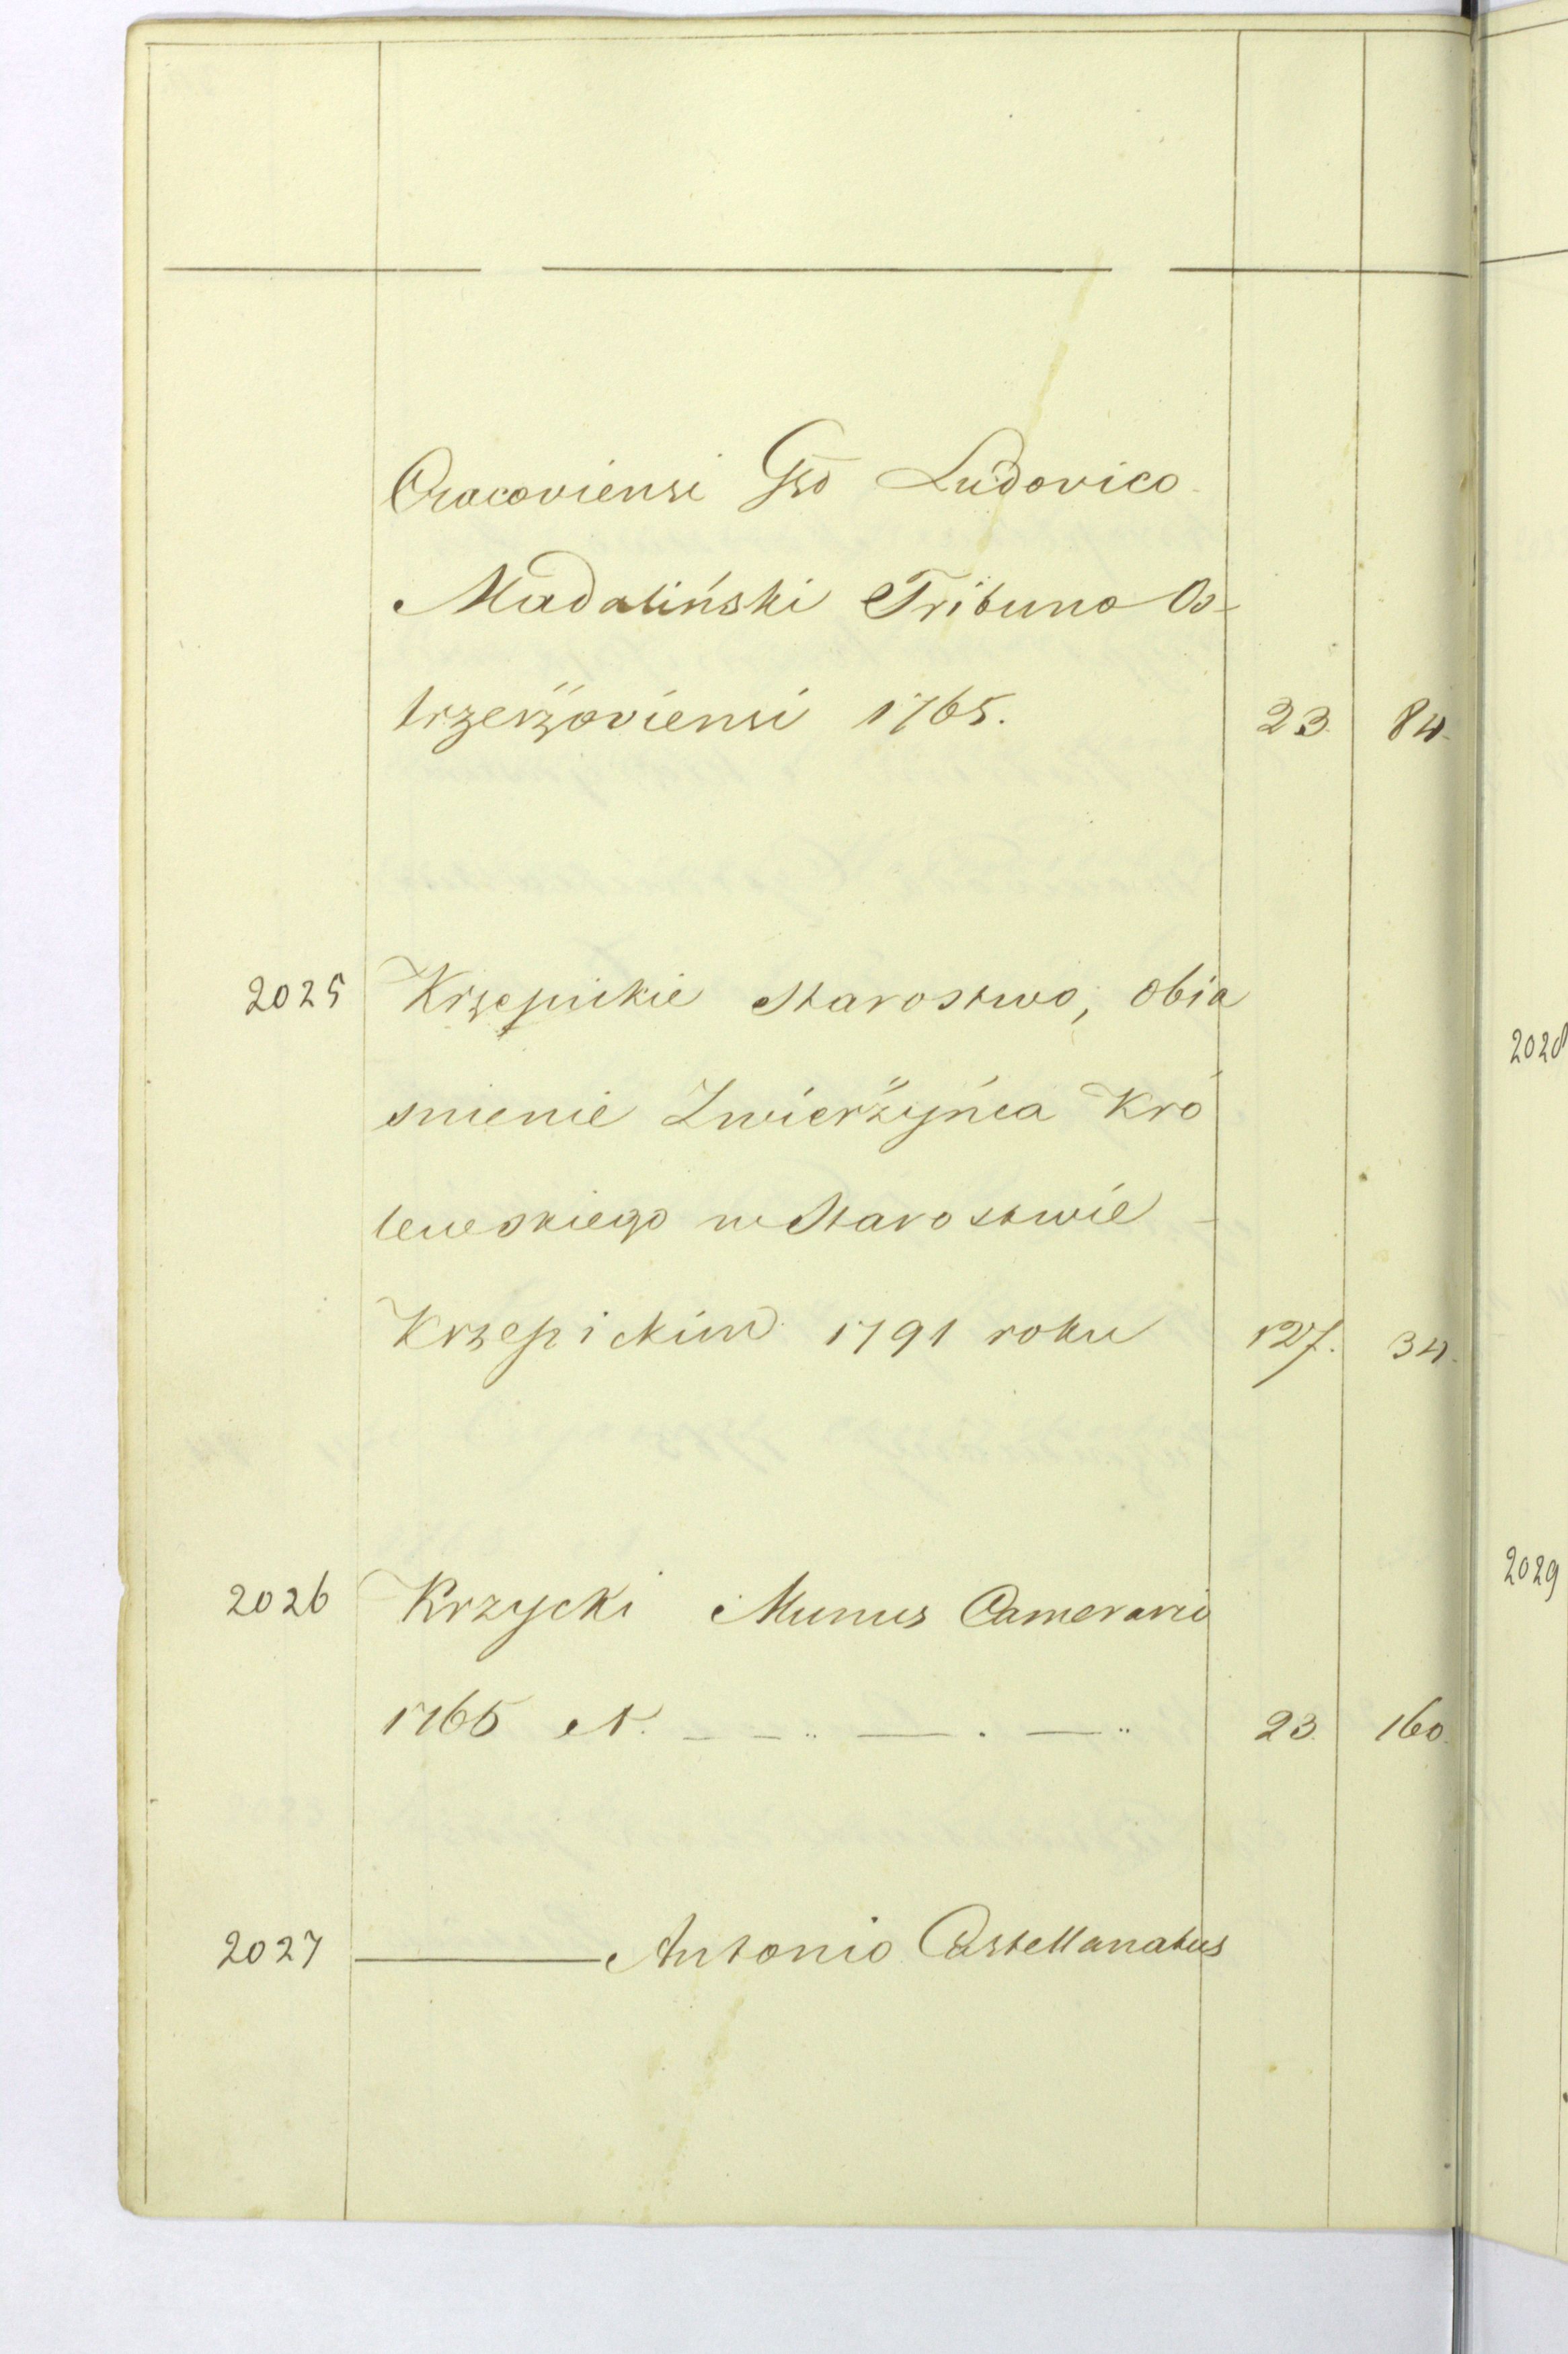 Cracoviensi Gso Ludovico
Madaliński Tribuno Os-
trzerżoviensi 1765. 23. 84.
2025 Krzepickie Starostwo, obia
snienie Zwierżyńca Kró
lewskiego w Starostwie
Krzepickim 1791 roku 127. 34.
2026 Krzycki Munus Camerario
1765 A. 23. 160.
2027 ——— Antonio Castellanatus
2028
2029